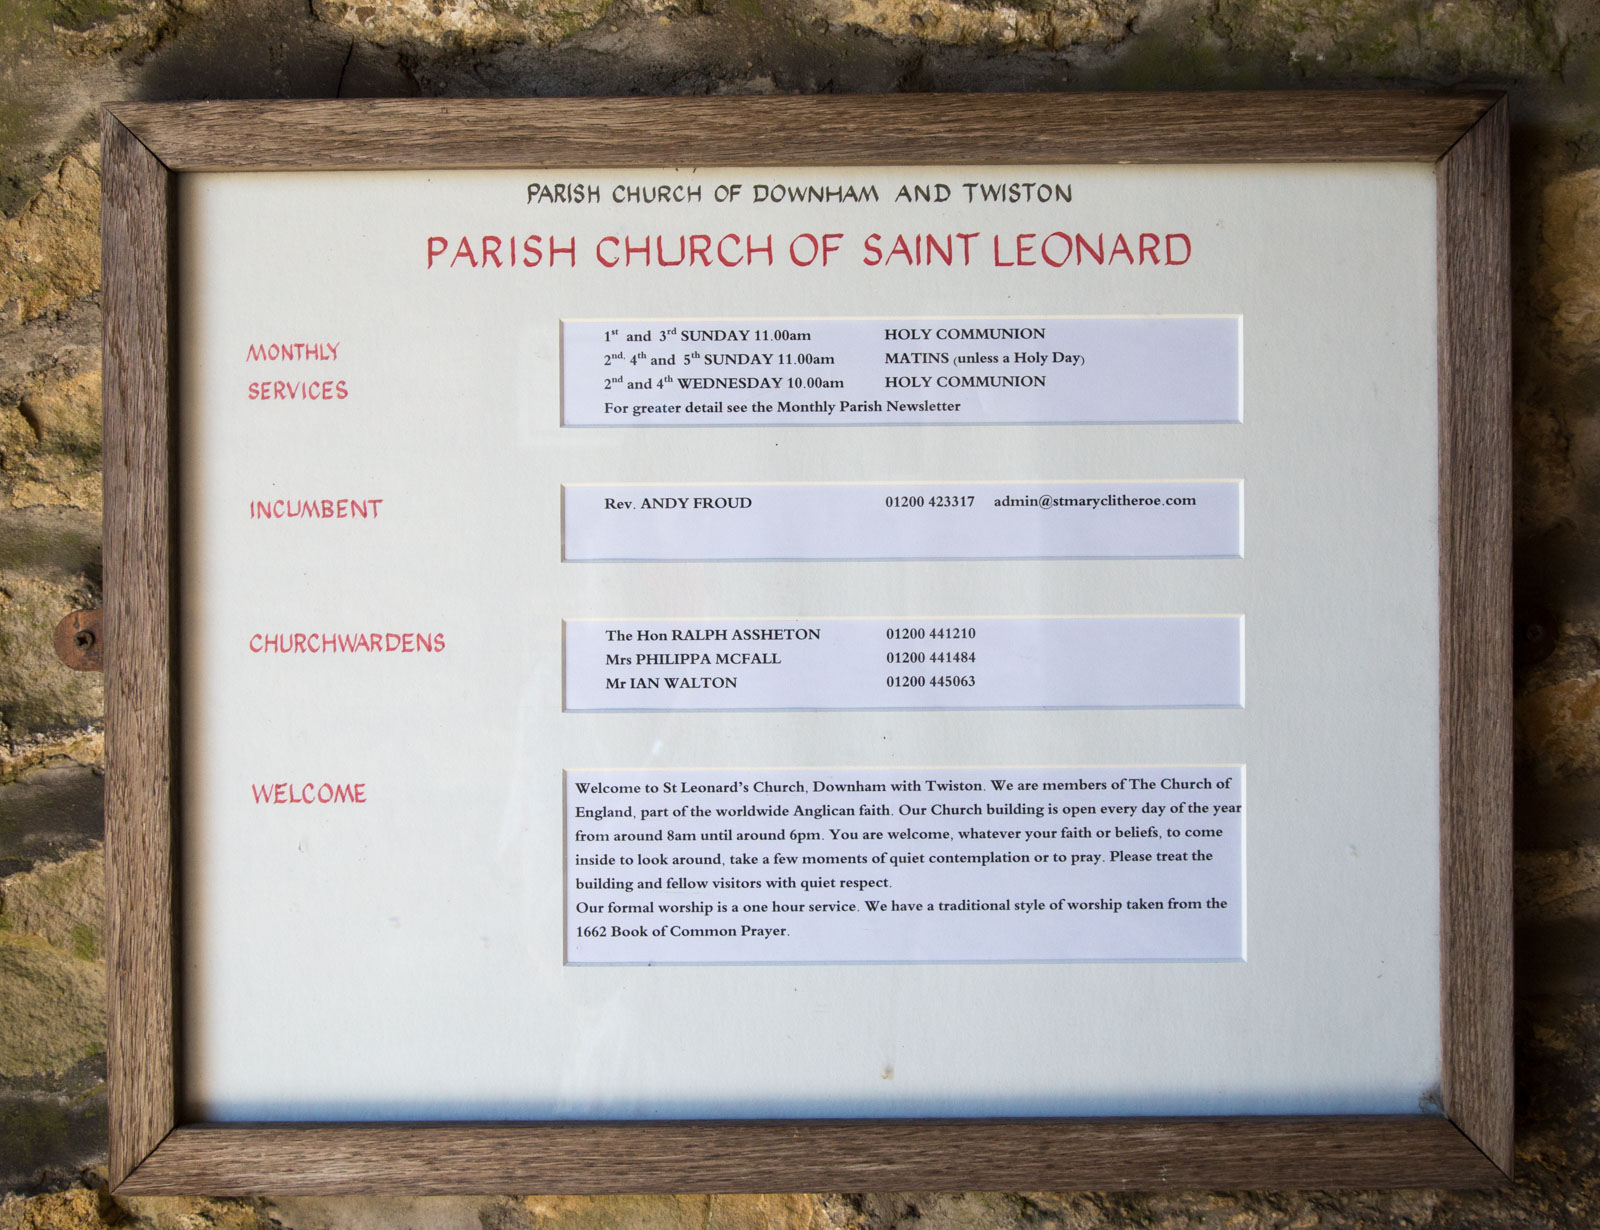 PARISH CHURCH OF DOWNHAM AND TWISTON
PARISH CHURCH OF SAINT LEONARD
MONTHLY
SERVICES
1st and 3rd SUNDAY 11.00am HOLY COMMUNION
2nd, 4th and 5th SUNDAY 11.00am MATINS (unless a Holy Day)
2nd and 4th WEDNESDAY 10.00am HOLY COMMUNION
For greater detail see the Monthly Parish Newsletter
INCUMBENT
Rev. ANDY FROUD 01200 423317 admin@stmaryclitheroe.com
CHURCHWARDENS
The Hon RALPH ASSHETON 01200 441210
Mrs PHILIPPA MCFALL 01200 441484
Mr IAN WALTON 01200 445063
WELCOME
Welcome to St Leonard's Church, Downham with Twiston. We are members of The Church of
England, part of the worldwide Anglican faith. Our Church building is open every day of the year
from around 8am until around 6pm. You are welcome, whatever your faith or beliefs, to come
inside to look around, take a few moments of quiet contemplation or to pray. Please treat the
building and fellow visitors with quiet respect.
Our formal worship is a one hour service. We have a traditional style of worship taken from the
1662 Book of Common Prayer.